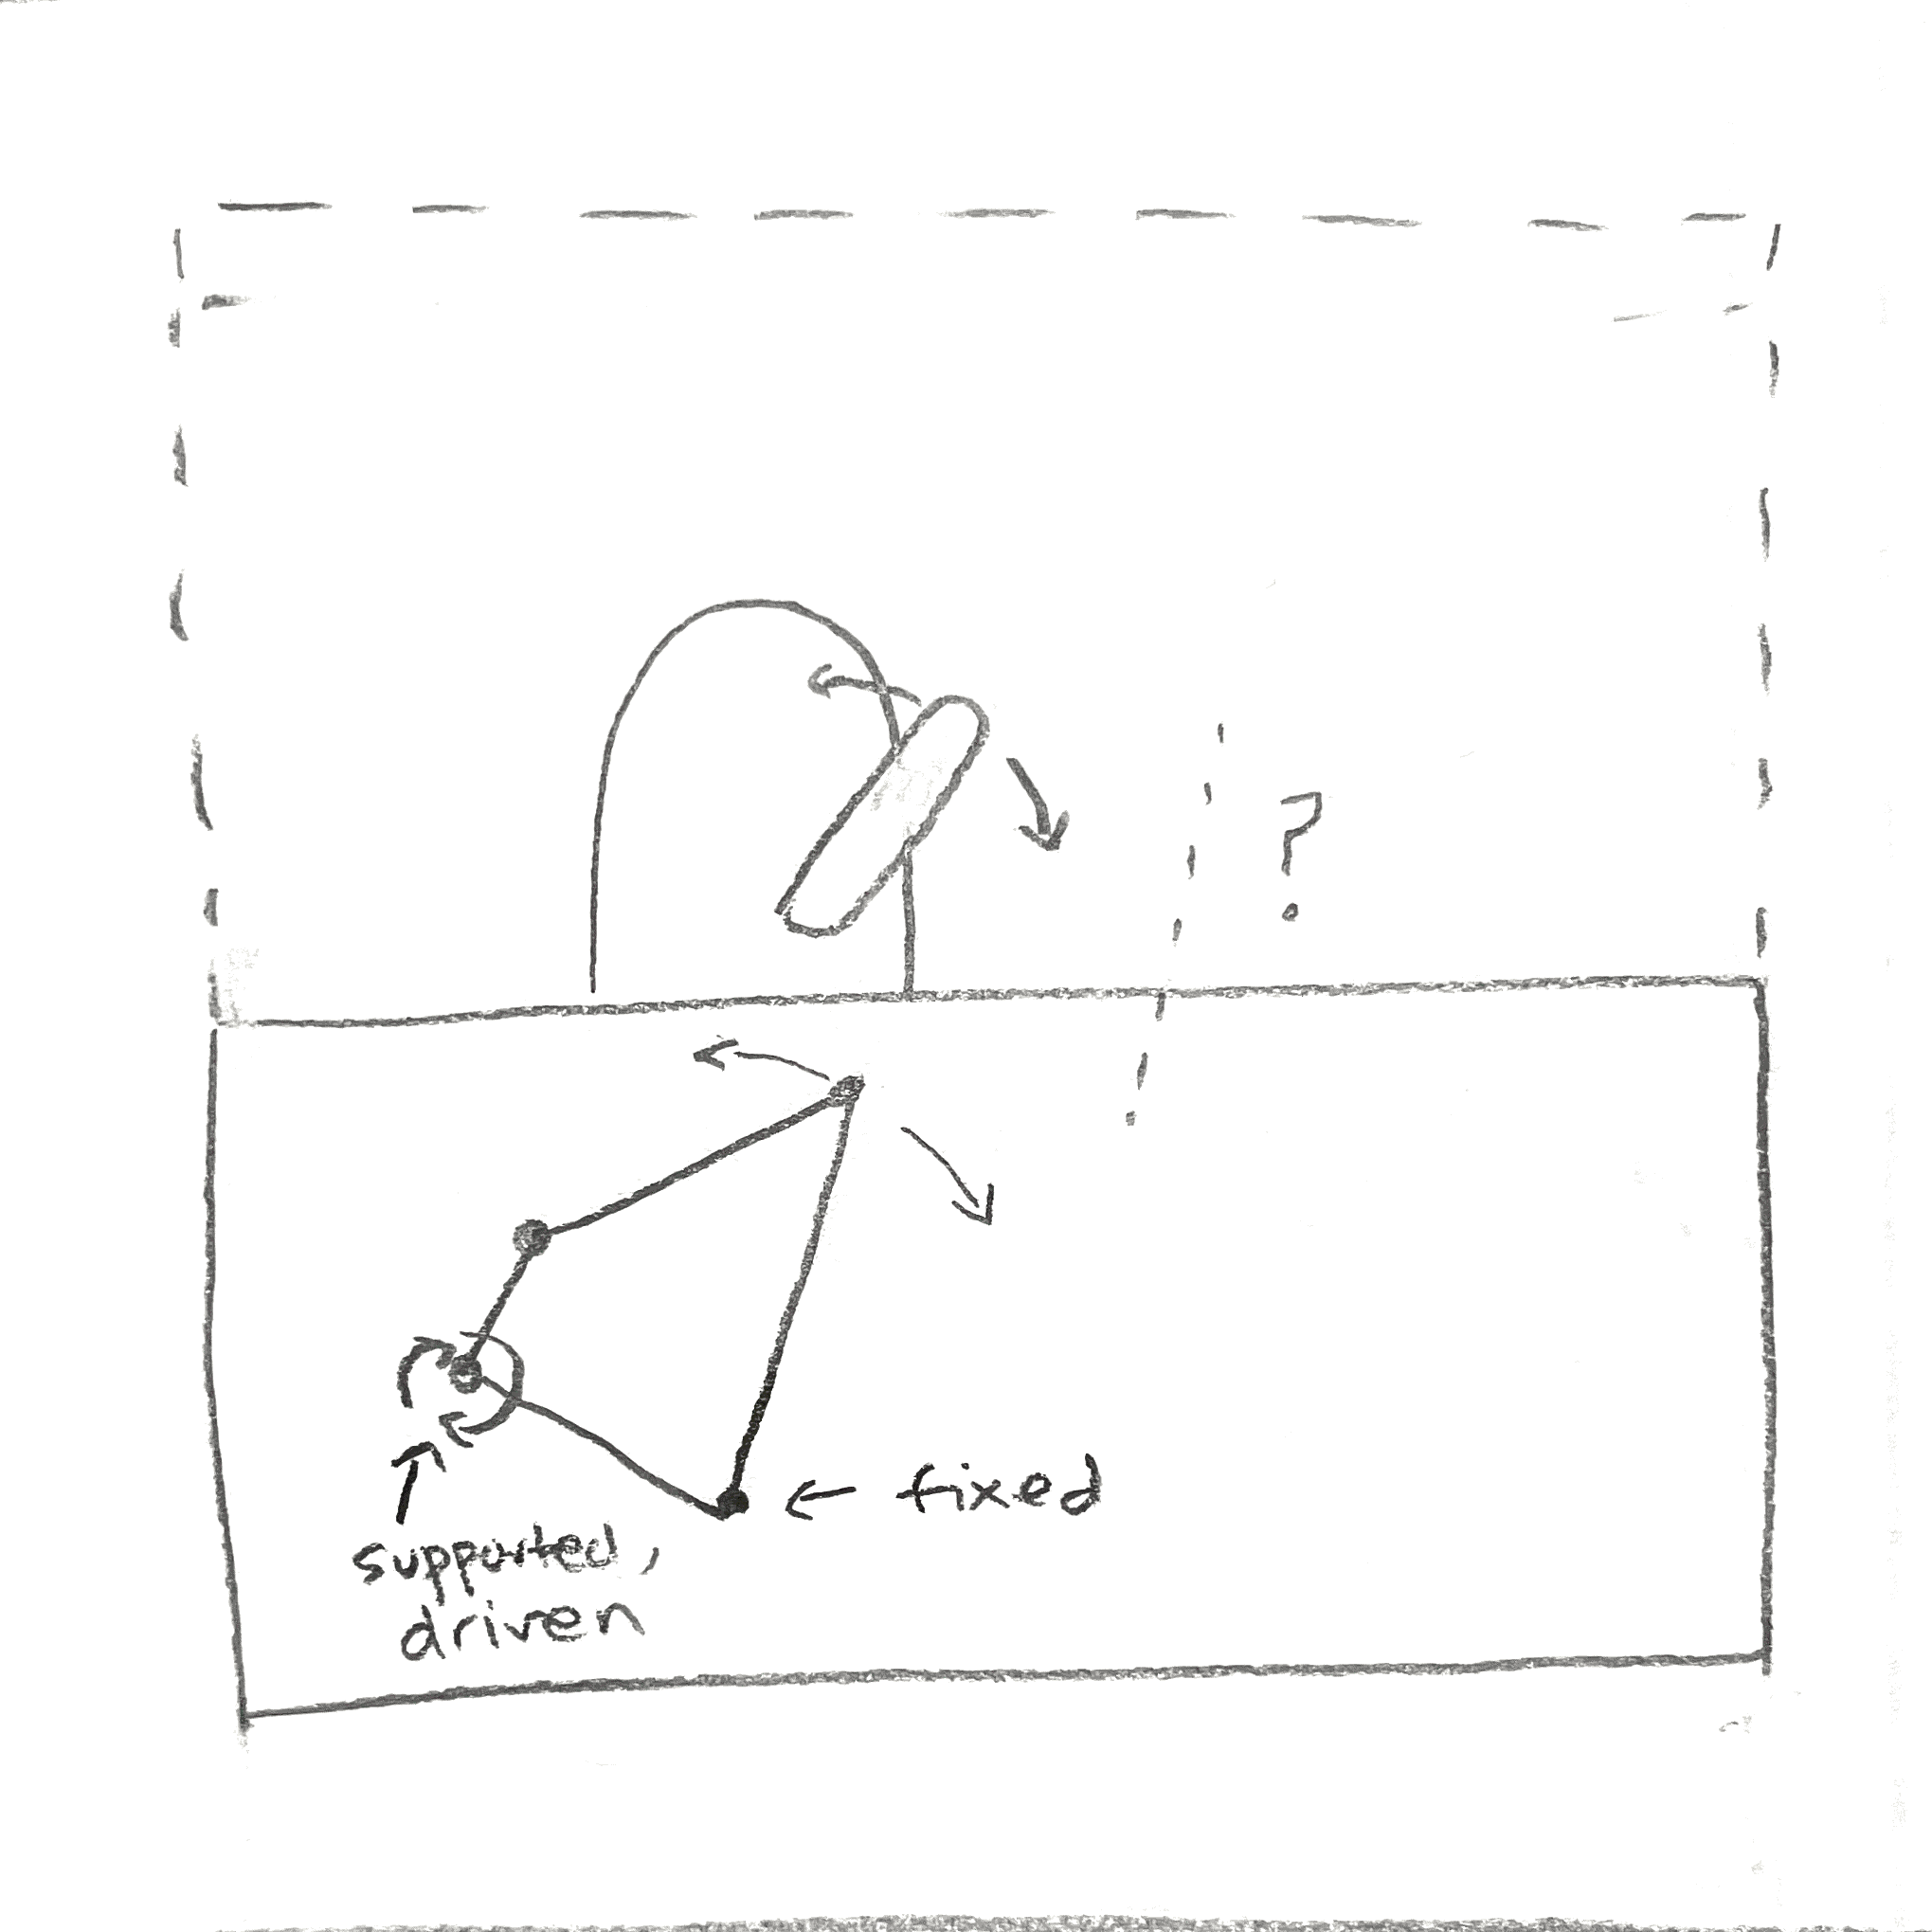 ?
← fixed
supported,
driven